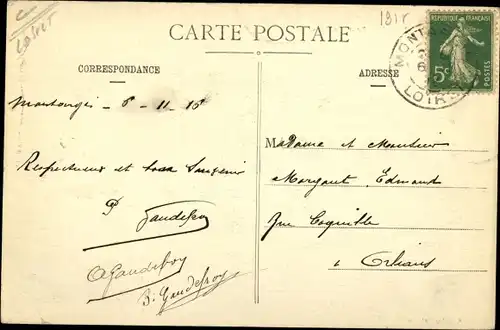 Loiret
CARTE POSTALE
CORRESPONDANCE
ADRESSE
RÉPUBLIQUE FRANÇAISE
5c
POSTES
LOIRET
Montargis 6 - 11 - 15
Respectueux et bon Souvenir
P Gaudefroy
A Gaudefroy
B. Gaudefroy
Madame et Monsieur
Margaut Edmond
Rue Coquille
à Orléans